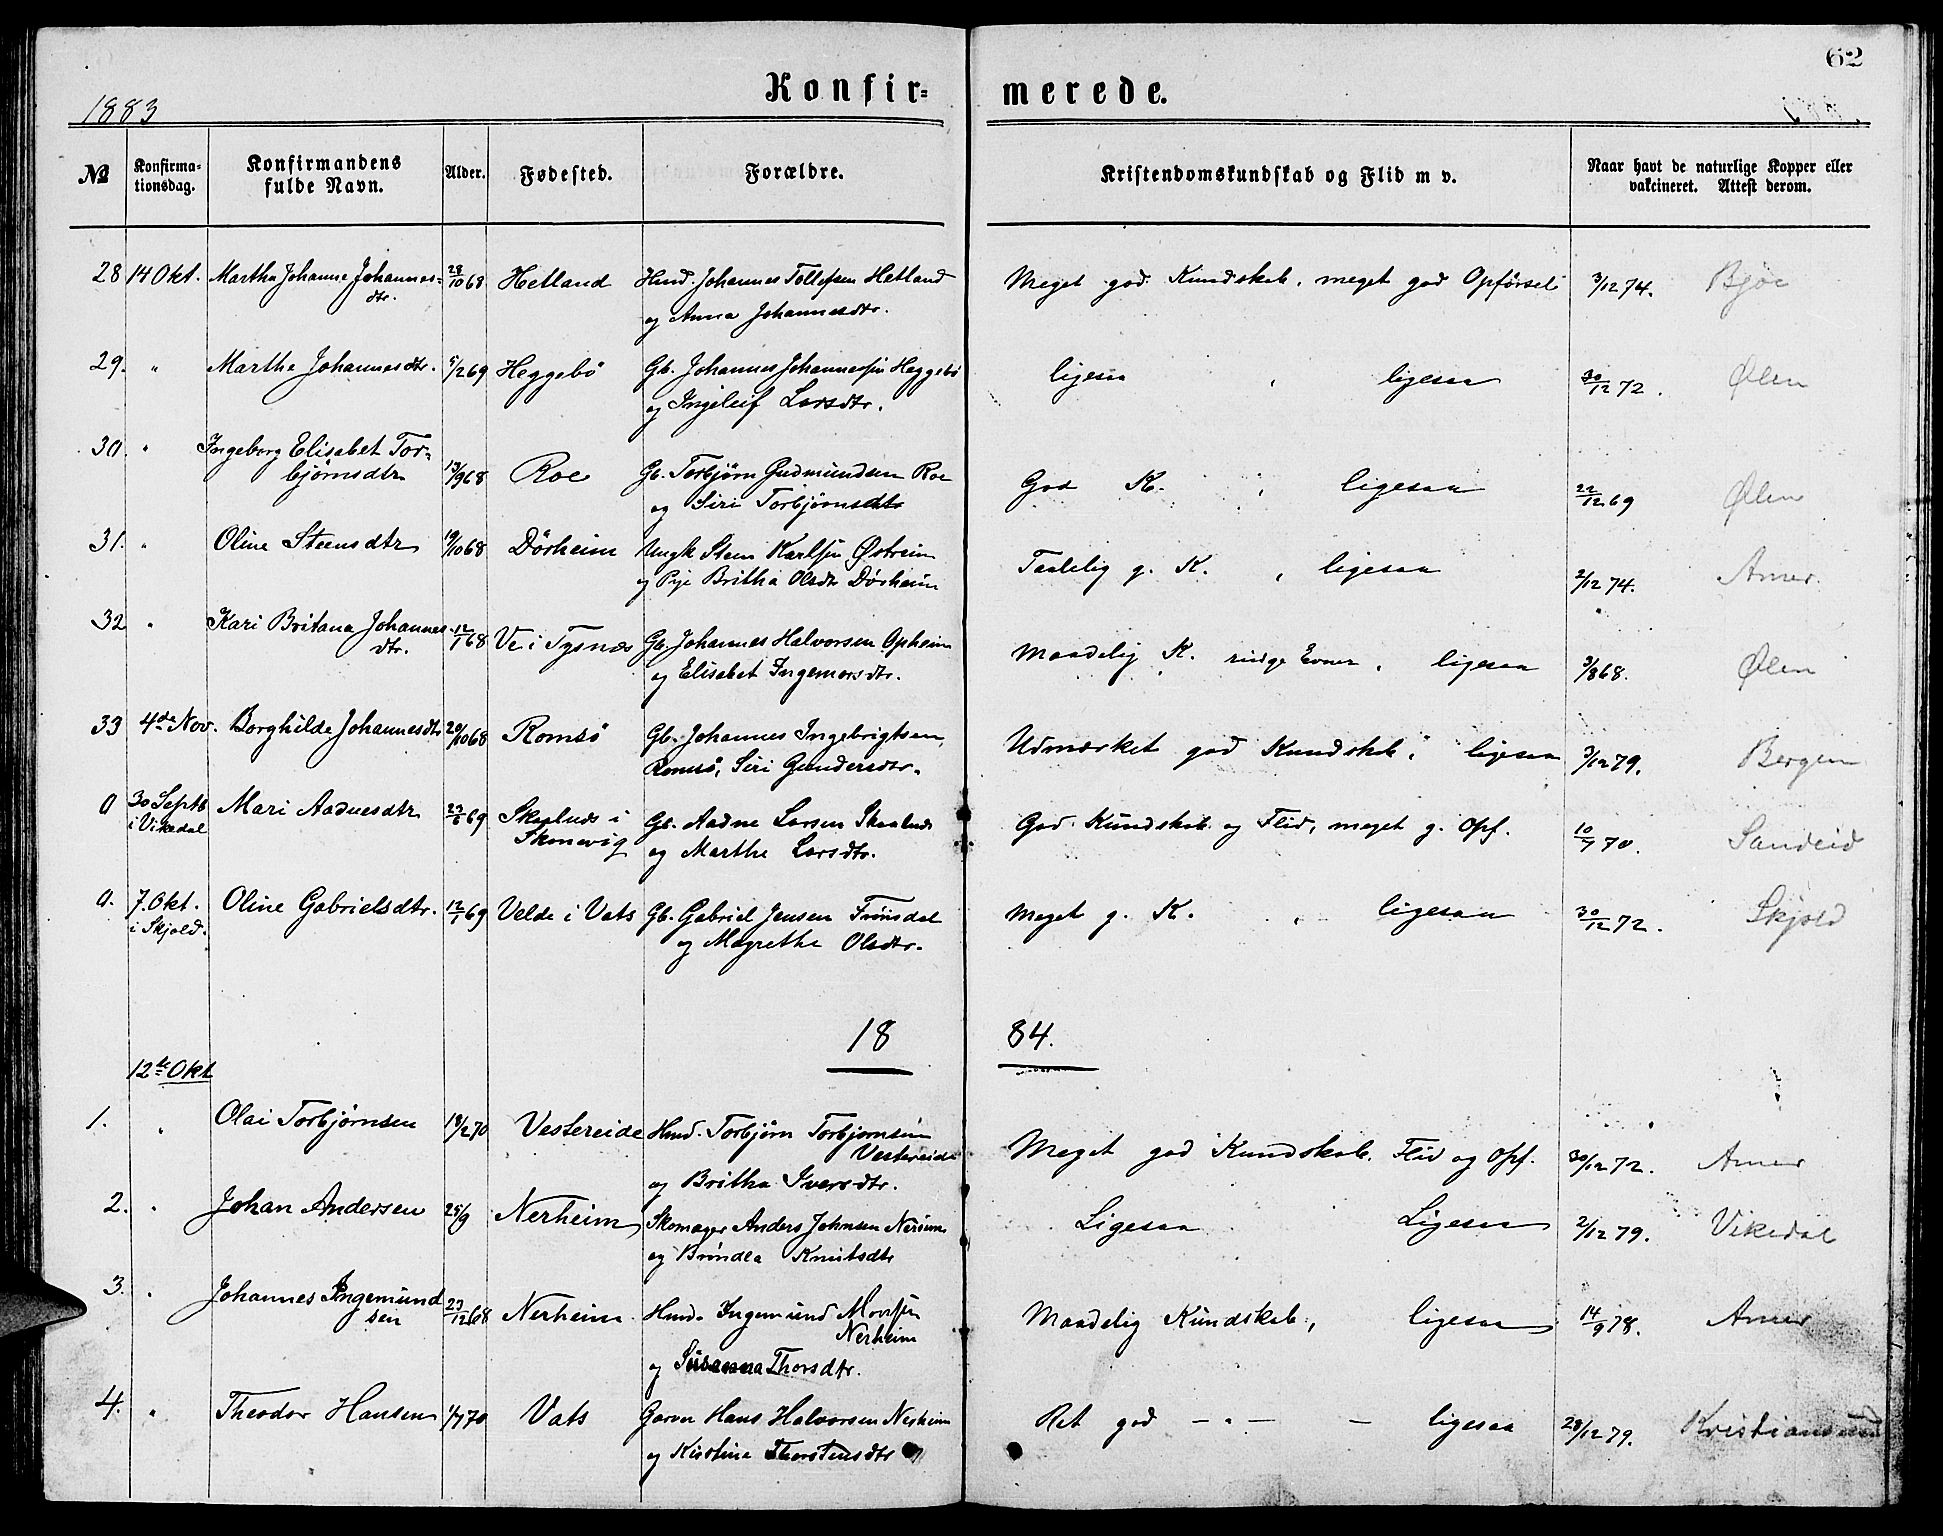 62
Konfir= merede.
1883
No Konfirma=tionsdag. Konfirmandens fulde Navn. Alder. Fødested. Forældre. Kristendomskundskab og Flid m v. Naar havt de naturlige Kopper eller vakcineret. Attest derom.
28 14 Okt. Martha Johanne Johannes= 28/10 68 Hetland Husd. Johannes Tollefsen Hetland Meget god Kundskab, meget god Opførsel 3/12 74. Bjoe
dtr. og Anna Johannesdtr.
29. " Marthe Johannesdtr. 5/2 69 Heggebö Gb. Johannes Johannessen Heggebö ligesaa , ligesaa 30/12 72. Ølen
og Ingeleif Larsdtr.
30. " Ingeborg Elisabet Tor=
björnsdtr 13/9 68 Roe Gb. Torbjörn Gudmundsen Roe God K. , ligesaa 22/12 69 Ølen
og Siri Torbjörnsdtr
31. " Oline Steensdtr 19/10 68 Dörheim Ungk Sten Karlsen Østrem Taalelig g. K. , ligesaa 2/12 74. Amer.
og Pige Britha Olsdtr Dörheim
32 " Kari Britana Johannes- 12/1 68 Ve i Tysnæs Gb. Johannes Halvorsen Opheim Maadelig K. ringe Evner , ligesaa 3/8 68. Ølen
dtr. og Elisabet Ingemarsdtr.
33 4de Nov. Borghilde Johannesdtr 20/10 68 Romsö Gb. Johannes Ingebrigtsen Udmærket god Kundskab, ligesaa 3/12 79. Bergen
Romsö, Siri Gundersdtr.
0 30 Septb Mari Aadnesdtr 23/6 69 Skaalnes i Gb. Aadne Larsen Skaalnes God Kundskab og Flid, meget g. Opf. 10/7 70. Sandeid
i Vikedal Skonevig og Marthe Larsdtr.
0. 7. Okt. Oline Gabrielsdtr. 12/1 69 Velde i Vats Gb. Gabriel Jensen Frönsdal Meget g. K. , ligesaa 30/12 72. Skjold
i Skjold. og Magrethe Olsdtr.
18 84.
12te Okt
1. " Olai Torbjörnsen 18/2 70 Vestereide Husd. Torbjörn Torbjörnsen Meget god Kundskab, Flid og Opf. 30/12 72. Amer
Vestereide
og Britha Iversdtr.
2. " Johan Andersen 25/9 Nerheim Skomager Anders Johnsen Nerheim Ligesaa Ligesaa 2/12 79. Vikedal
og Bröndla Knutsdtr
3. " Johannes Ingemund 23/12 68 Nerheim Husd. Ingemund Monsen Maadelig Kundskab, ligesaa 14/9 78. Amer
sen Nerheim
og Susanna Thorsdtr.
4. " Theodor Hansen 1/7 70 Vats Garver Hans Halvorsen Nerheim Ret god — " — — ligesaa 28/12 79. Kristiansund
og Kistine Thorstensdtr